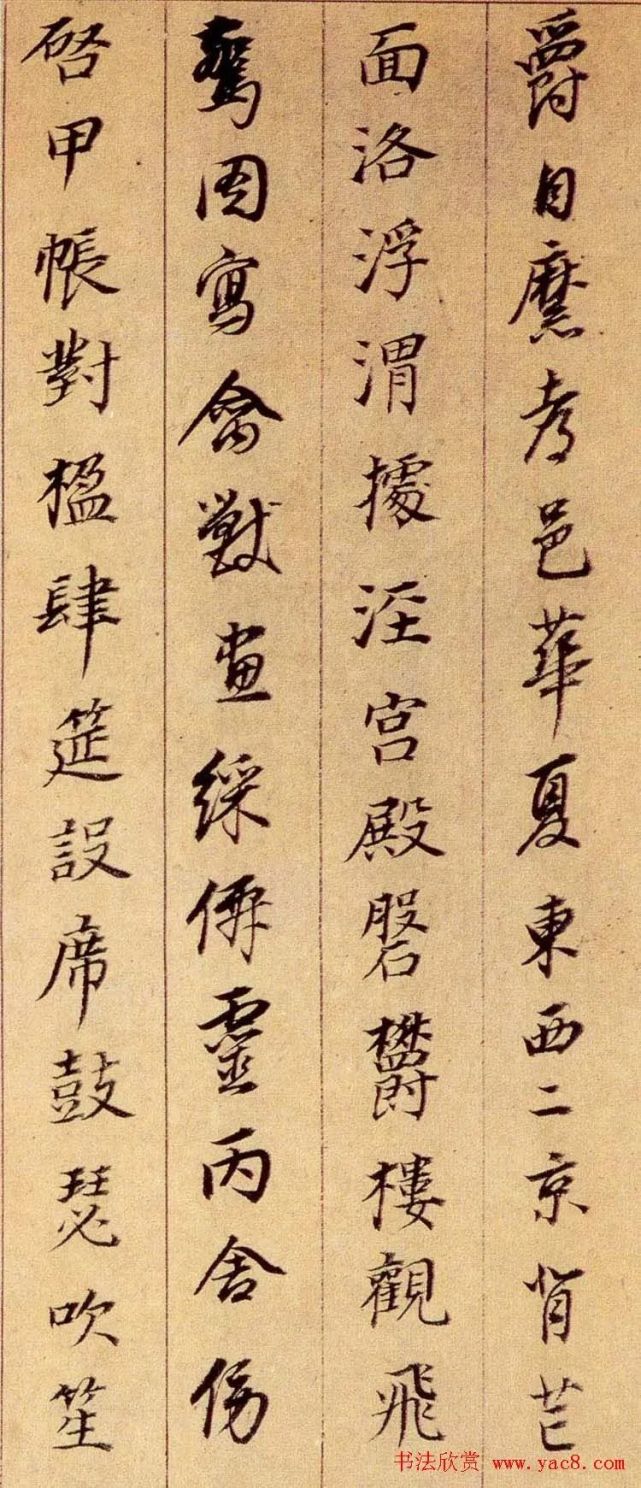 爵自縻都邑華夏東西二京背芒
面洛浮渭據涇宮殿磐鬱樓觀飛
驚圖寫禽獸畫綵僊靈丙舍傍
啓甲帳對楹肆筵設席鼓瑟吹笙
书法欣赏 www.yac8.com